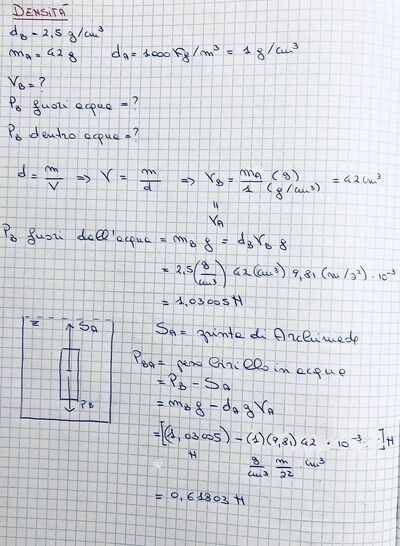 DENSITÁ
d_B = 2,5 g/cm³
m_A = 42 g d_A = 1000 Kg/m³ = 1 g/cm³
V_B = ?
P_B fuori acqua = ?
P_B dentro acqua = ?
d = m/V ⇒ V = m/d ⇒ V_B = m_A (g) / 1 (g/cm³) = 42 cm³
=
V_A
P_B fuori dall'acqua = m_B g = d_B V_B g
= 2,5 (g/cm³) 42 (cm³) 9,81 (m/s²) · 10⁻³
= 1,03005 N
S_A S_A = spinta di Archimede
P_BA = peso birillo in acqua
= P_B - S_A
P_B = m_B g - d_A g V_A
= [(1,03005) - (1)(9,81) 42 · 10⁻³ ] N
N g/cm³ m/s² cm³
= 0,61803 N